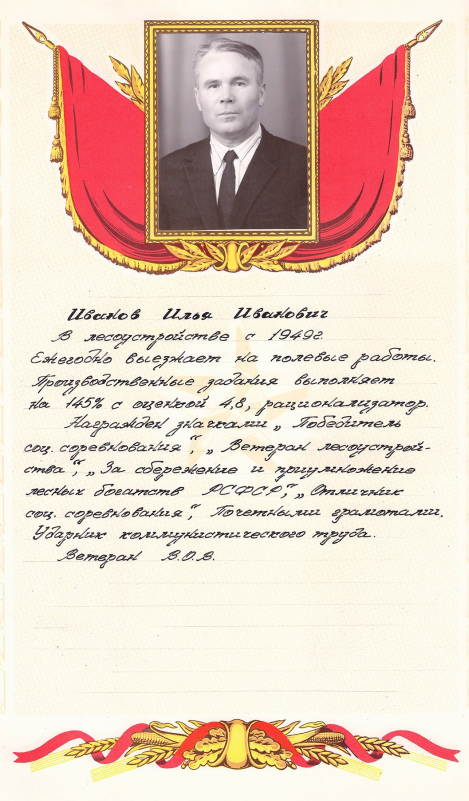 Иванов Илья Иванович
В лесоустройстве с 1949г.
Ежегодно выезжает на полевые работы.
Производственные задания выполняет
на 145% с оценкой 4,8, рационализатор.
Награжден значками „Победитель
соц. соревнования“, „Ветеран лесоустрой-
ства“, „За сбережение и приумножение
лесных богатств РСФСР“, „Отличник
соц. соревнования“, Почетными грамотами.
Ударник коммунистического труда.
Ветеран В.О.В.